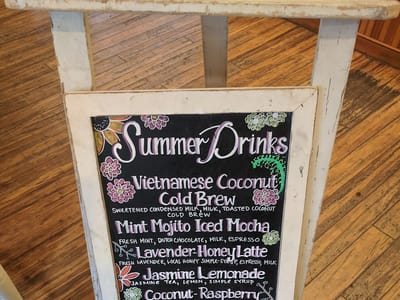 Summer Drinks
Vietnamese Coconut
Cold Brew
SWEETENED CONDENSED MILK, MILK, TOASTED COCONUT
COLD BREW
Mint Mojito Iced Mocha
FRESH MINT, DUTCH CHOCOLATE, MILK, ESPRESSO
Lavender-Honey Latte
FRESH LAVENDER, LOCAL HONEY SIMPLE-SYRUP, ESPRESSO, MILK
Jasmine Lemonade
JASMINE TEA, LEMON, SIMPLE SYRUP
Coconut-Raspberry